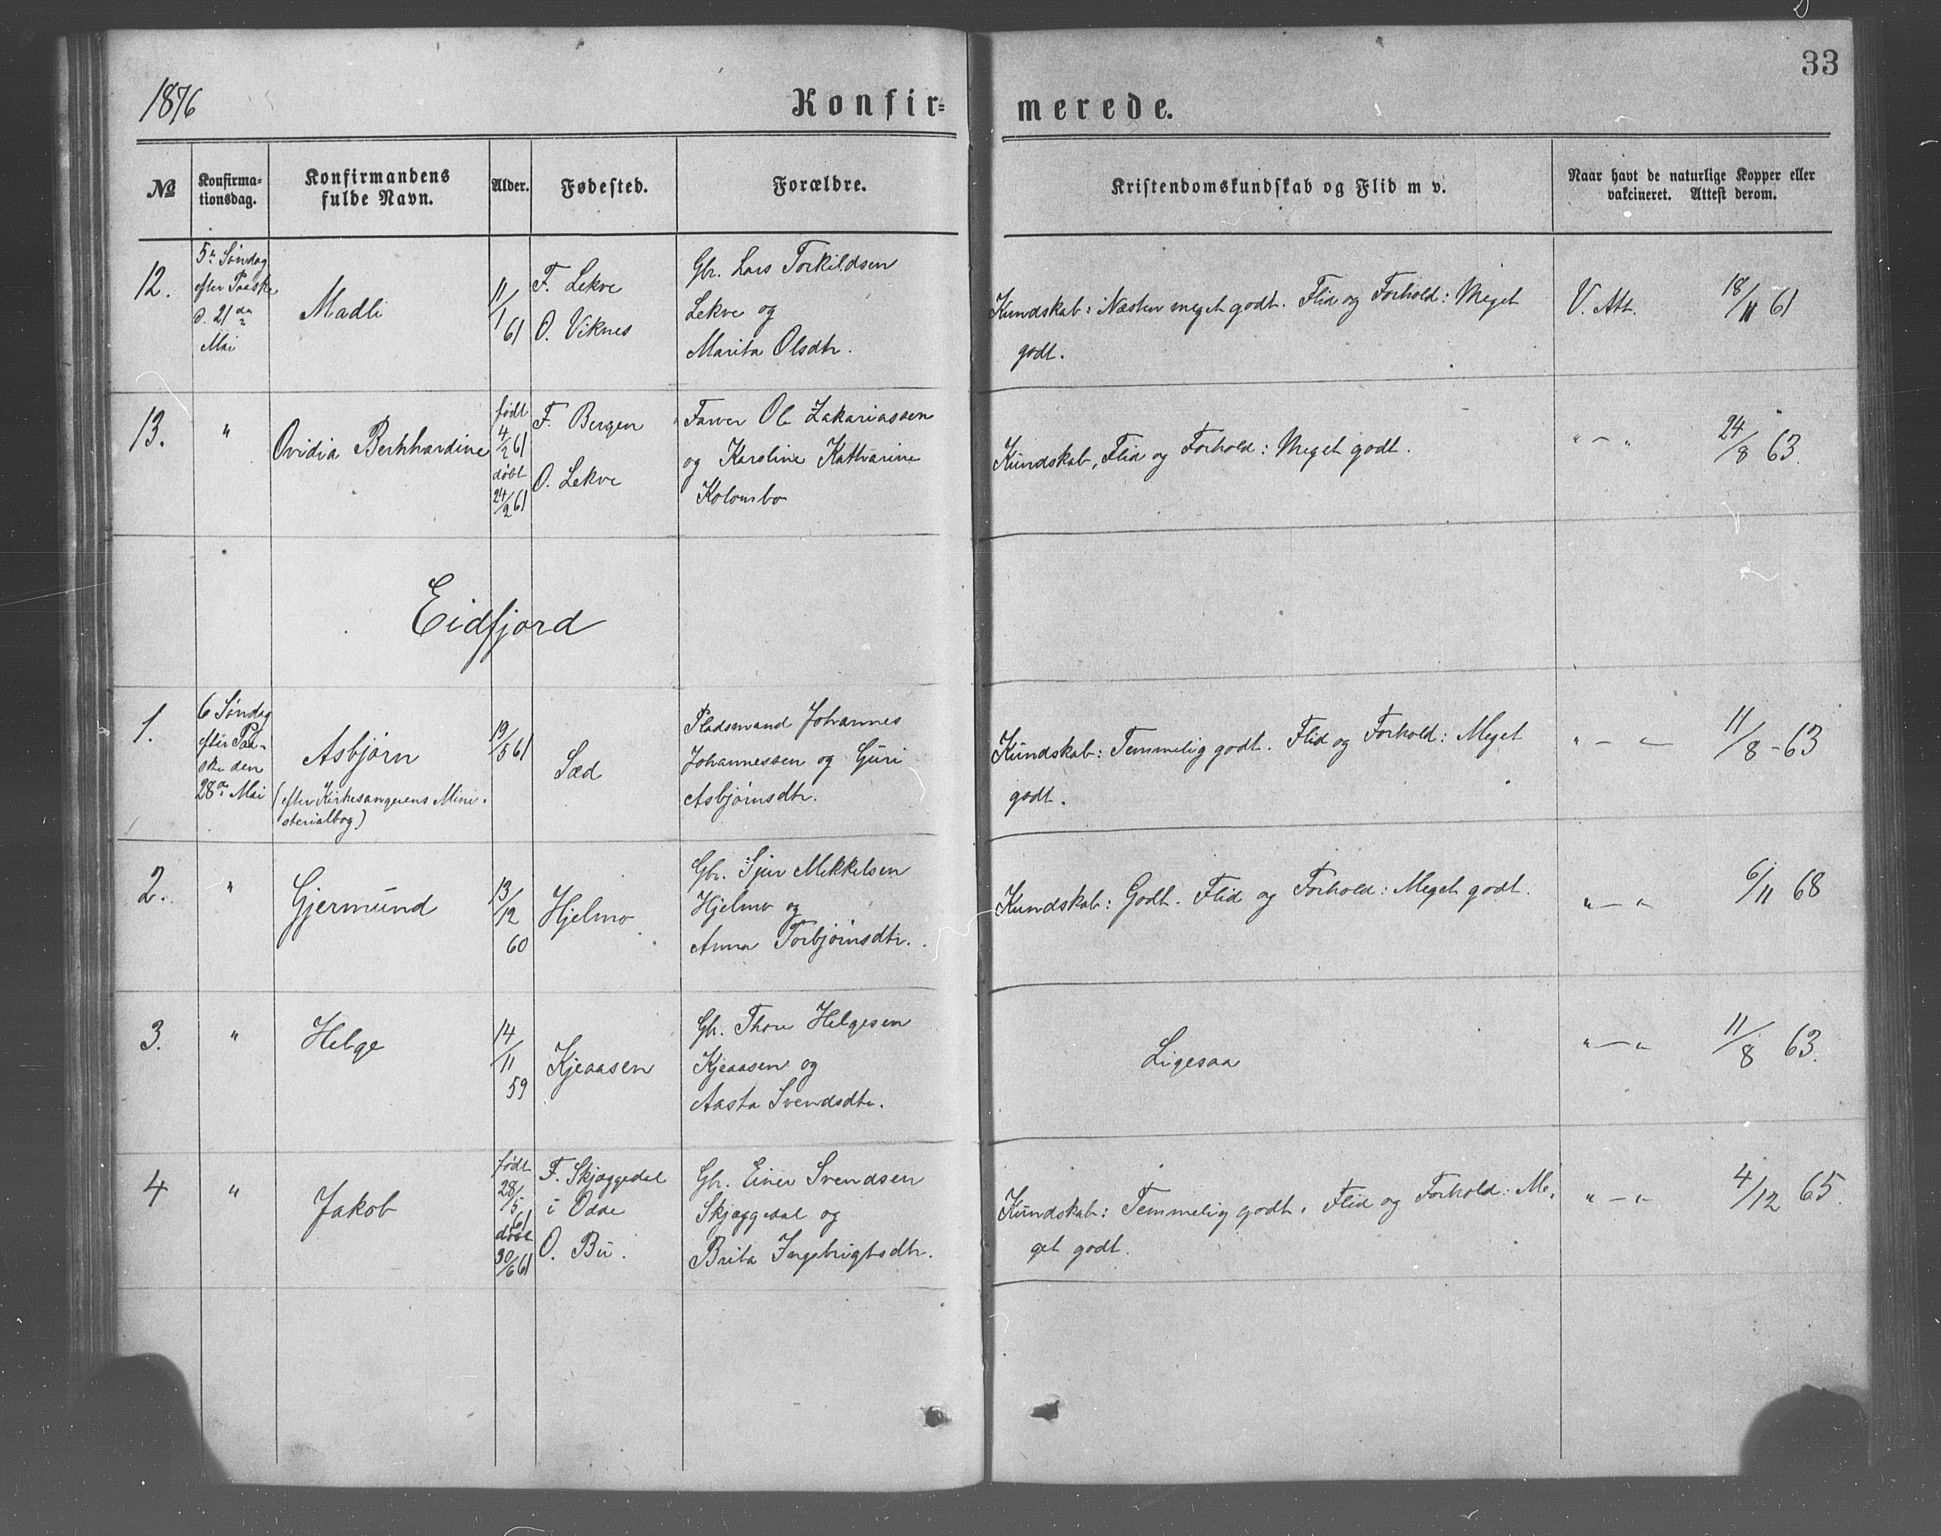 33
1876
Konfir=
merede.
No
Konfirma-
tionsdag.
Konfirmandens
fulde Navn.
Alder.
Fødested.
Forældre.
Kristendomskundskab og Flid m v.
Naar havt de naturlige Kopper eller
vakcineret. Attest derom.
12.
5te Søndag
efter Paaske
d. 21de
Mai
Madli
11/1 61
F. Lekve
O. Viknes
Gbr. Lars Torkildsen
Lekve og
Marita Olsdtr.
Kundskab: Næsten meget godt. Flid og Forhold: Meget
godt.
V. Att. 18/11 61
13.
"
Ovidia Berkhardine
født
4/2 61
døbt
24/2 61
F. Bergen
O. Lekve
Farver Ole Zakariassen
og Karoline Katharine
Kolombo
Kundskab, Flid og Forhold: Meget godt.
" — " 24/8 63.
Eidfjord
1.
6 Søndag
efter Paa-
ske den
28de Mai
Asbjørn
(efter Kirkesangerens Mini-
sterialbog)
19/5 61
Sæd
Pladsmand Johannes
Johannessen og Guri
Asbjørnsdtr.
Kundskab: Temmelig godt. Flid og Forhold: Meget
godt.
" — " 11/8 - 63
2.
"
Gjermund
13/12
60
Hjelmo
Gbr. Sjur Mikkelsen
Hjelmo og
Anna Torbjørnsdtr.
Kundskab: Godt. Flid og Forhold: Meget godt.
" — " 6/11 68
3.
"
Helge
14/11
59
Kjeaasen
Gbr. Thore Helgesen
Kjeaasen og
Aasta Svendsdtr.
Ligesaa
" — " 11/8 63.
4
"
Jakob
født
28/5
61
døbt
30/6 61
F. Skjæggedal
i Odde
O. Bu.
Gbr. Einer Svendsen
Skjæggedal og
Brita Ingebrigtsdtr.
Kundskab: Temmelig godt. Flid og Forhold: Me-
get godt.
" — " 4/12 65.